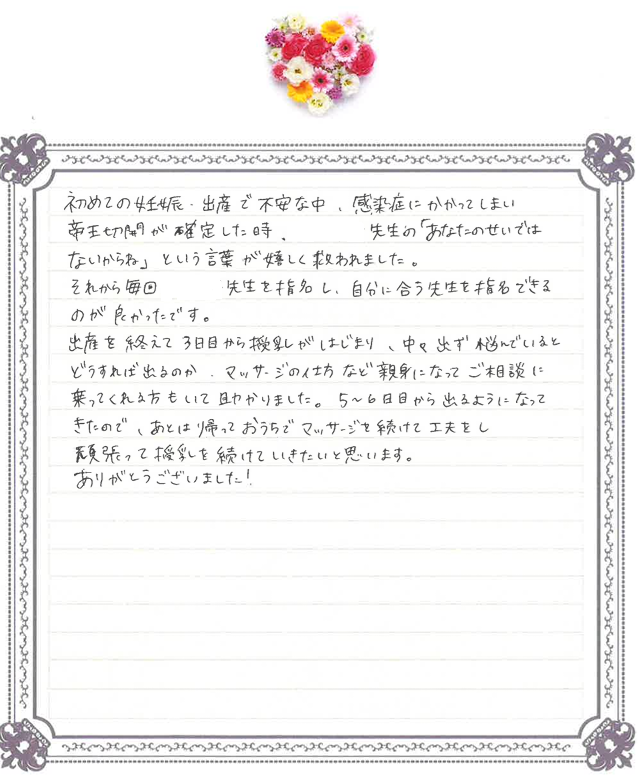 初めての妊娠・出産で不安な中、感染症にかかってしまい
帝王切開が確定した時、 先生の「あなたのせいでは
ないからね」という言葉が嬉しく救われました。
それから毎回 先生を指名し、自分に合う先生を指名できる
のが良かったです。
出産を終えて3日目から授乳がはじまり、中々出ず悩んでいると
どうすれば出るのか、マッサージの仕方など親身になってご相談に
乗ってくれる方もいて助かりました。5～6日目から出るようになって
きたので、あとは帰っておうちでマッサージを続けて工夫をし
頑張って授乳を続けていきたいと思います。
ありがとうございました!